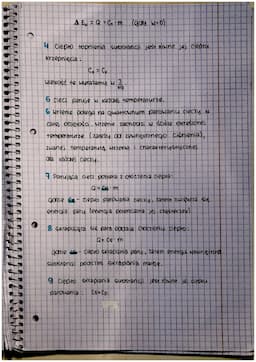 Δ Ew = Q = Ct · m (gdy W=0)
4 Ciepło topnienia substancji jest równe jej ciepłu
krzepnięcia:
Ct = Ck
Wartość tę wyrażamy w J/kg
5 Ciecz paruje w każdej temperaturze.
6 Wrzenie polega na gwałtownym parowaniu cieczy w
całej objętości. Wrzenie zachodzi w ściśle określonej
temperaturze (zależy od zewnętrznego ciśnienia),
zwanej temperaturą wrzenia i charakterystycznej
dla każdej cieczy.
7 Parująca ciecz pobiera z otoczenia ciepło:
Q = m
gdzie - ciepło parowania cieczy, zatem zwiększa się
energia pary (energia potencjalna jej cząsteczek)
8 Skraplająca się para oddaje otoczeniu ciepło:
Q = · m
gdzie - ciepło skraplania pary, zatem energia wewnętrzna
substancji podczas skraplania maleje.
9 Ciepło skraplania substancji jest równe jej ciepłu
parowania: